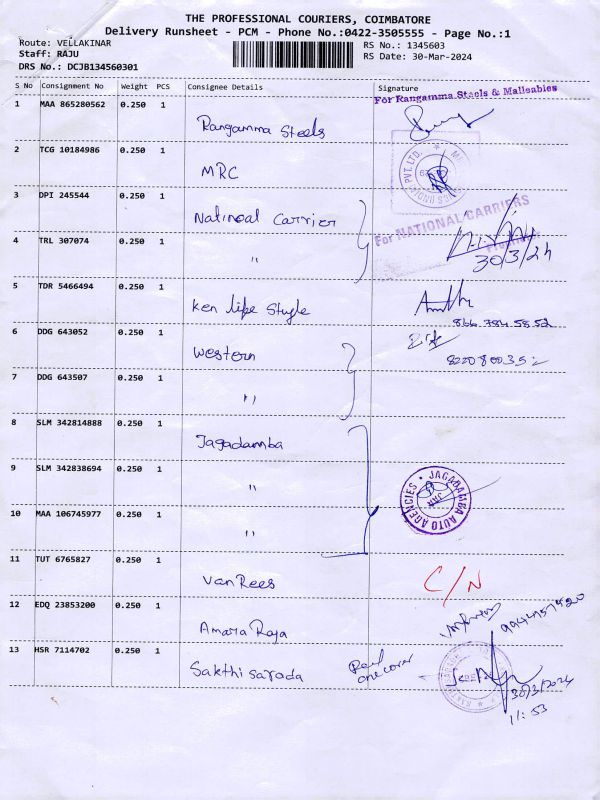 THE PROFESSIONAL COURIERS, COIMBATORE
Delivery Runsheet - PCM - Phone No.:0422-3505555 - Page No.:1
Route: VELLAKINAR
Staff: RAJU
DRS No.: DCJB134560301
RS No.: 1345603
RS Date: 30-Mar-2024
S No Consignment No Weight PCS Consignee Details Signature
For Rangamma Steels & Malleabies
1 MAA 865280562 0.250 1
Rangamma Steels
2 TCG 10184986 0.250 1
MRC
PVT. LTD.
3 DPI 245544 0.250 1
National Carrier
For NATIONAL CARRIERS
4 TRL 307074 0.250 1
"
30/3/24
5 TDR 5466494 0.250 1
Ken life Style
866 784 58 52
6 DDG 643052 0.250 1
Western
7 DDG 643507 0.250 1
"
8 SLM 342814888 0.250 1
Jagadamba
9 SLM 342838694 0.250 1
"
JAGADAMBA AUTO AGENCIES
10 MAA 106745977 0.250 1
"
11 TUT 6765827 0.250 1
Van Rees
C/N
12 EDQ 23853200 0.250 1
Amara Raja
13 HSR 7114702 0.250 1
Sakthi sarada
one cover
30/3/2024
11:53